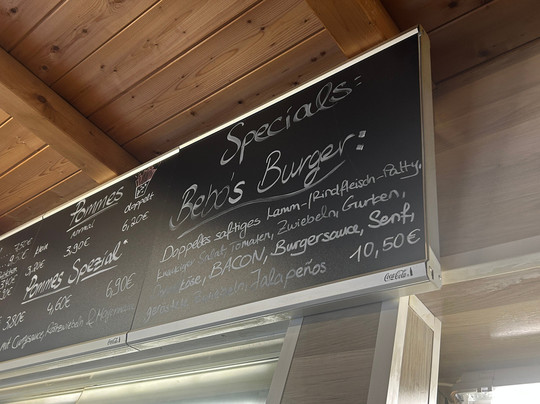 Specials:
Bebo's Burger:
Doppeltes saftiges Lamm-/Rindfleisch-Patty,
Salat, Tomaten, Zwiebeln, Gurken,
Käse, BACON, Burgersauce, Senf,
Zwiebeln, Jalapeños 10,50€
Coca-Cola
Pommes
normal doppelt
3,90€ 6,20€
Pommes Spezial*
4,60€ 6,90€
3,80€
mit Currysauce, Röstzwiebeln & Mayonnaise